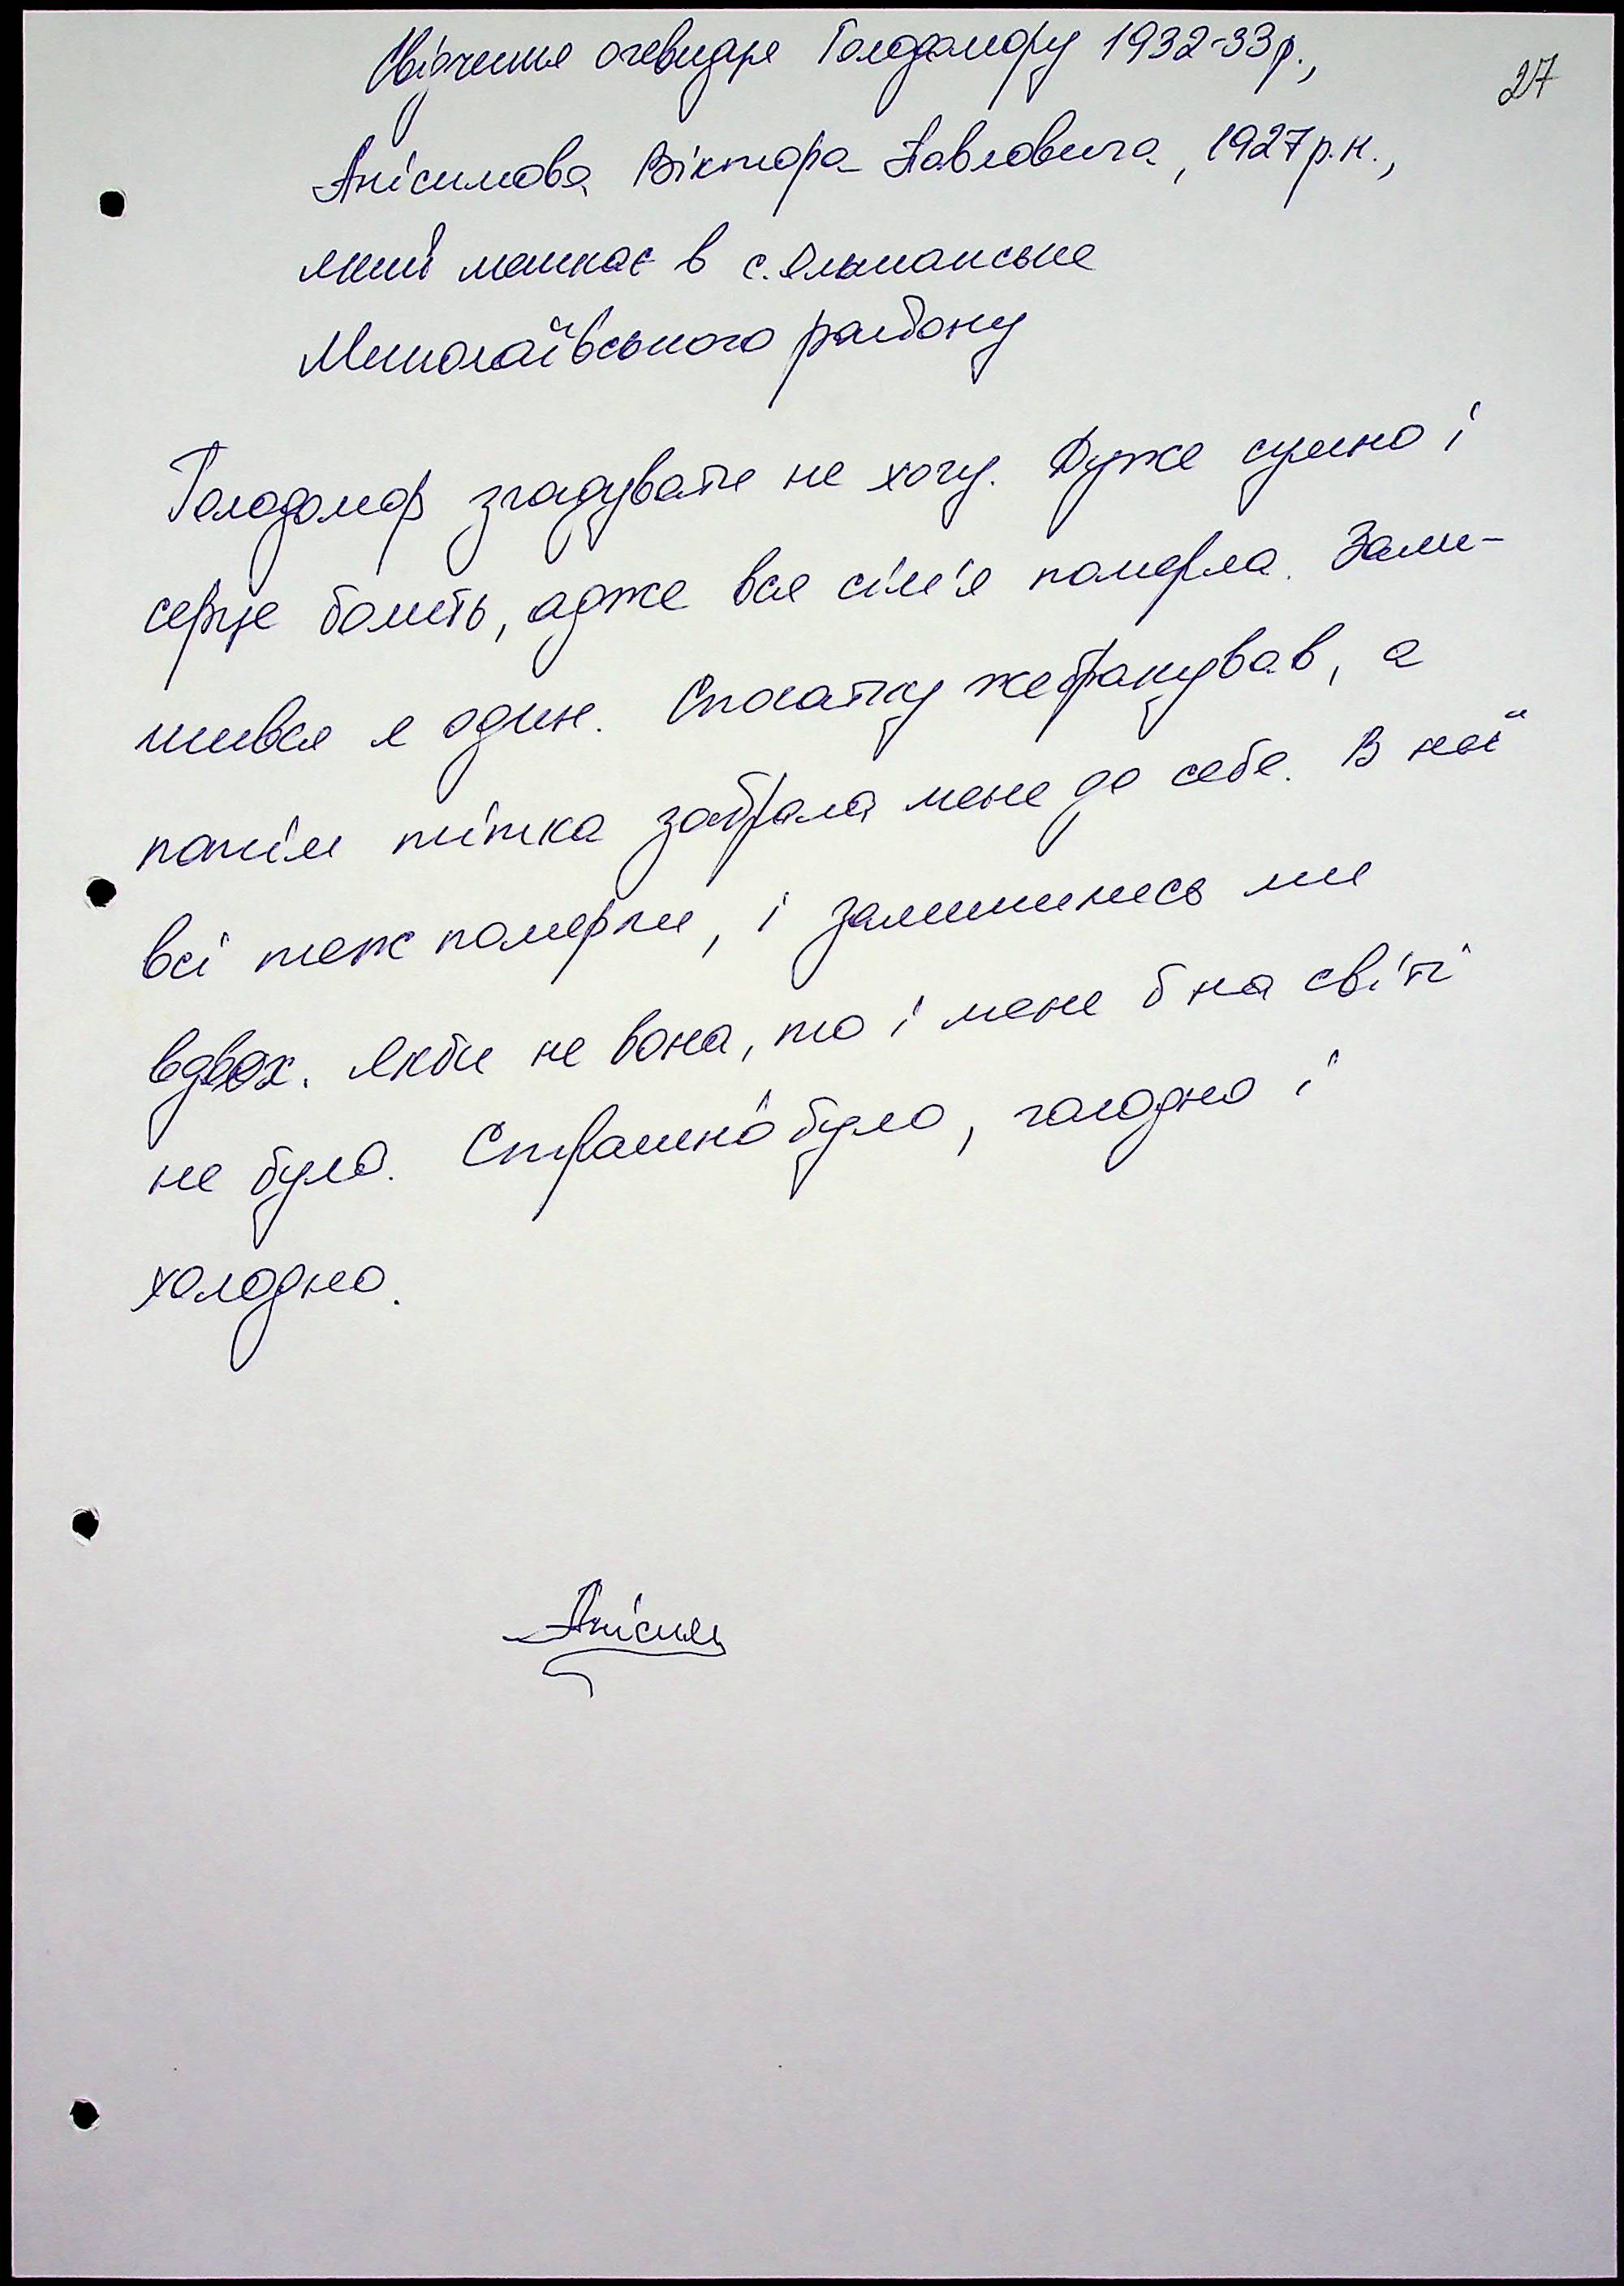 Свідчення очевидця Голодомору 1932-33р.,
27
Анісимова Віктора Павловича, 1927р.н.,
який мешкає в с. Ульянівське
Миколаївського району
Голодомор згадувати не хочу. Дуже сумно і
серце болить, адже вся сім'я померла. Зали-
шився я один. Спочатку жебракував, а
потім тітка забрала мене до себе. В неї
всі теж померли, і залишились ми
вдвох. Якби не вона, то і мене б на світі
не було. Страшно було, голодно і
холодно.